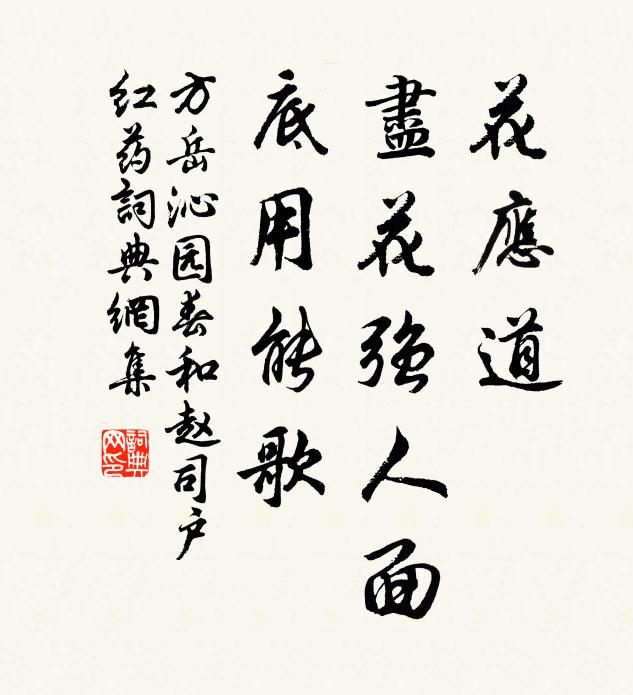 花應道
盡花強人面
底用能歌
方岳沁园春和赵司户
红药詞典網集
詞典网印